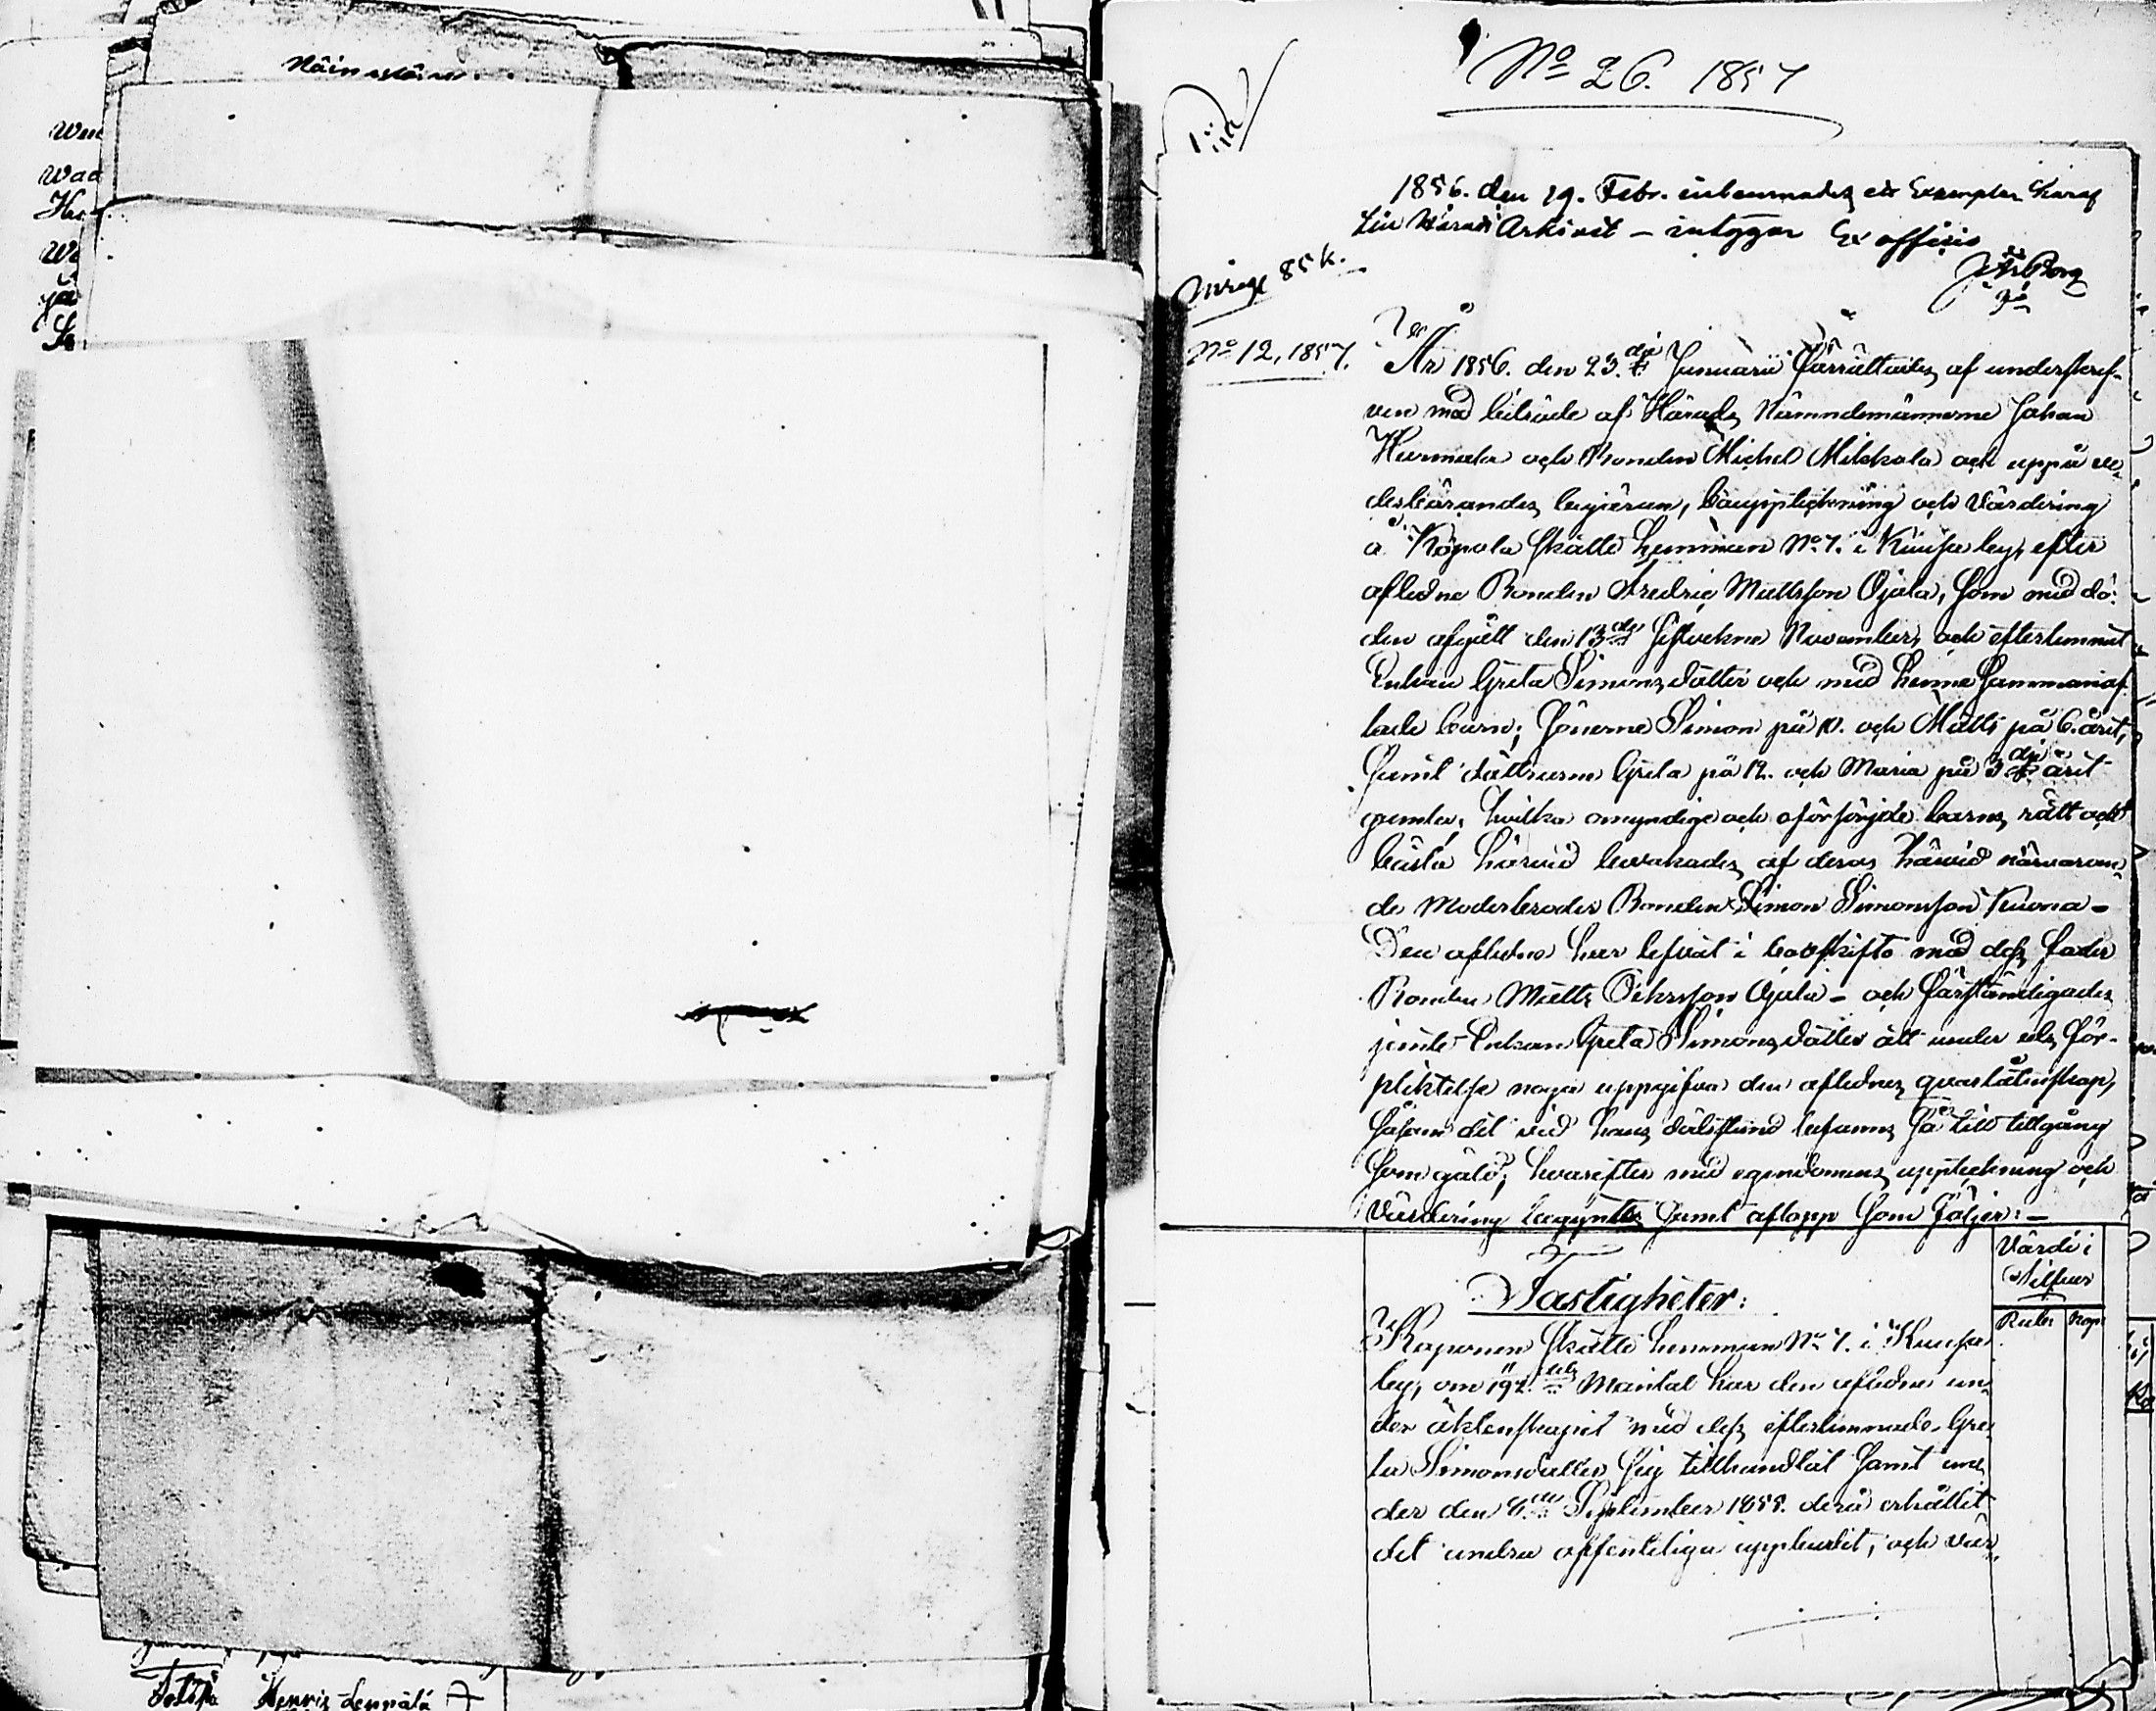 Näin
Wad
No 26. 1857
1856. den 19. Febr. inlemnades ett Exemplar häraf
till Härads Arkivet – intygar Ex officio
85 k.
No 12, 1857.
År 1856. den 23.dje Januarii förrättades af underskref-
ven med biträde af Härads Nämndemännerne Johan
Hurmala och Bonden Michel Mikkola och uppå ve-
derbörandes begäran, bouppteckning och värdering
å Köpola Skatte hemman No 7. i Kuusa by, efter
aflidne Bonden Fredric Mattsson Ojala, som med dö-
den afgått den 13de sistvekne November, och efterlemnat
Enkan Greta Simonsdotter och med henne sammanaf-
lade barn; Sönerne Simon på 10. och Matts på 6. året,
samt döttrarne Greta på 12. och Maria på 3dje året
gamla, hvilka omyndige och oförsörjde barns rätt och
bästa härvid bevakades af deras härvid närvaran-
de Moderbroder Bonden Simon Simonsson Kuona –
Den aflidne har lefvat i booskifto med dess fader
Bonden Matts Ojala – och förständigades
jemte Enkan Greta Simonsdotter att under eds för-
pliktelse noga uppgifva den aflidnes qvarlåtenskap,
sådan det vid hans dödsstund befanns så till tillgång
som gäld; hvarefter med egendomens uppteckning och
värdering begyntes samt aflopp som följer: –
Fastigheter:
Värde i
Silfver
Rub: Kop:
Skatte hemman No 7. i Kuusa
by, om Mantal har den aflidne un-
der äktenskapet med dess efterlemnade Gre-
ta Simonsdotter sig tillhandlat samt un-
der den September 1855. derå erhållit
det andra offentliga uppbudet, och vär-
Henric Leppälä